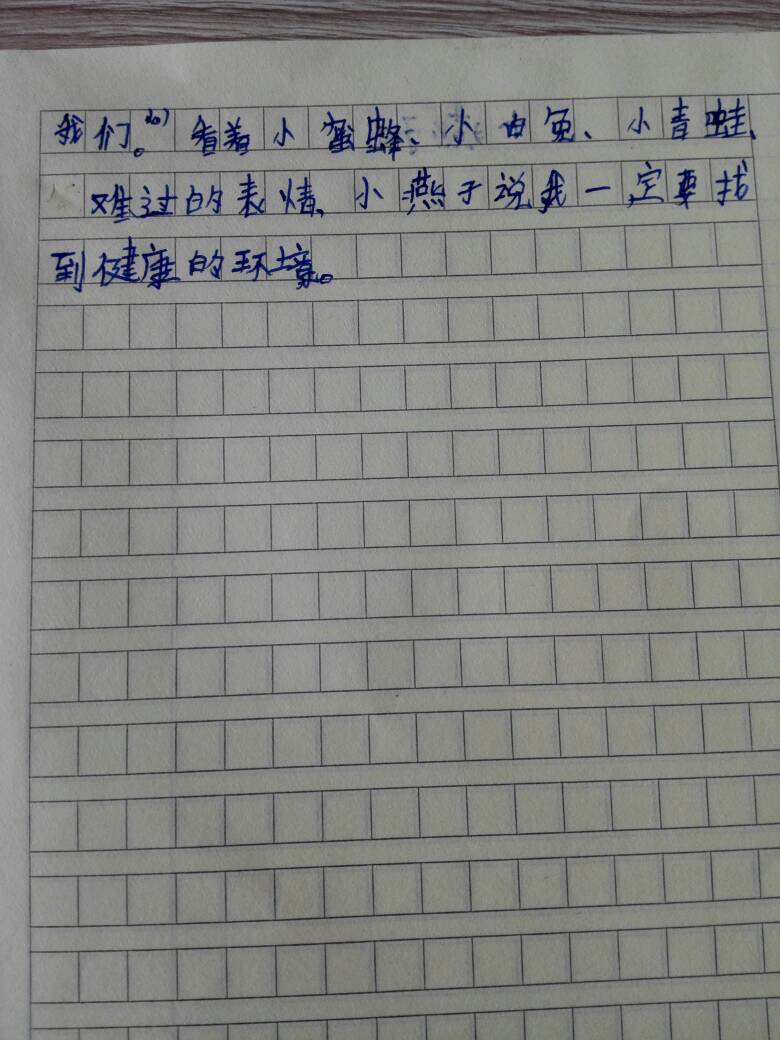 我们。”看着小蜜蜂、小白兔、小青蛙、
难过的表情、小燕子说我一定要找
到健康的环境。